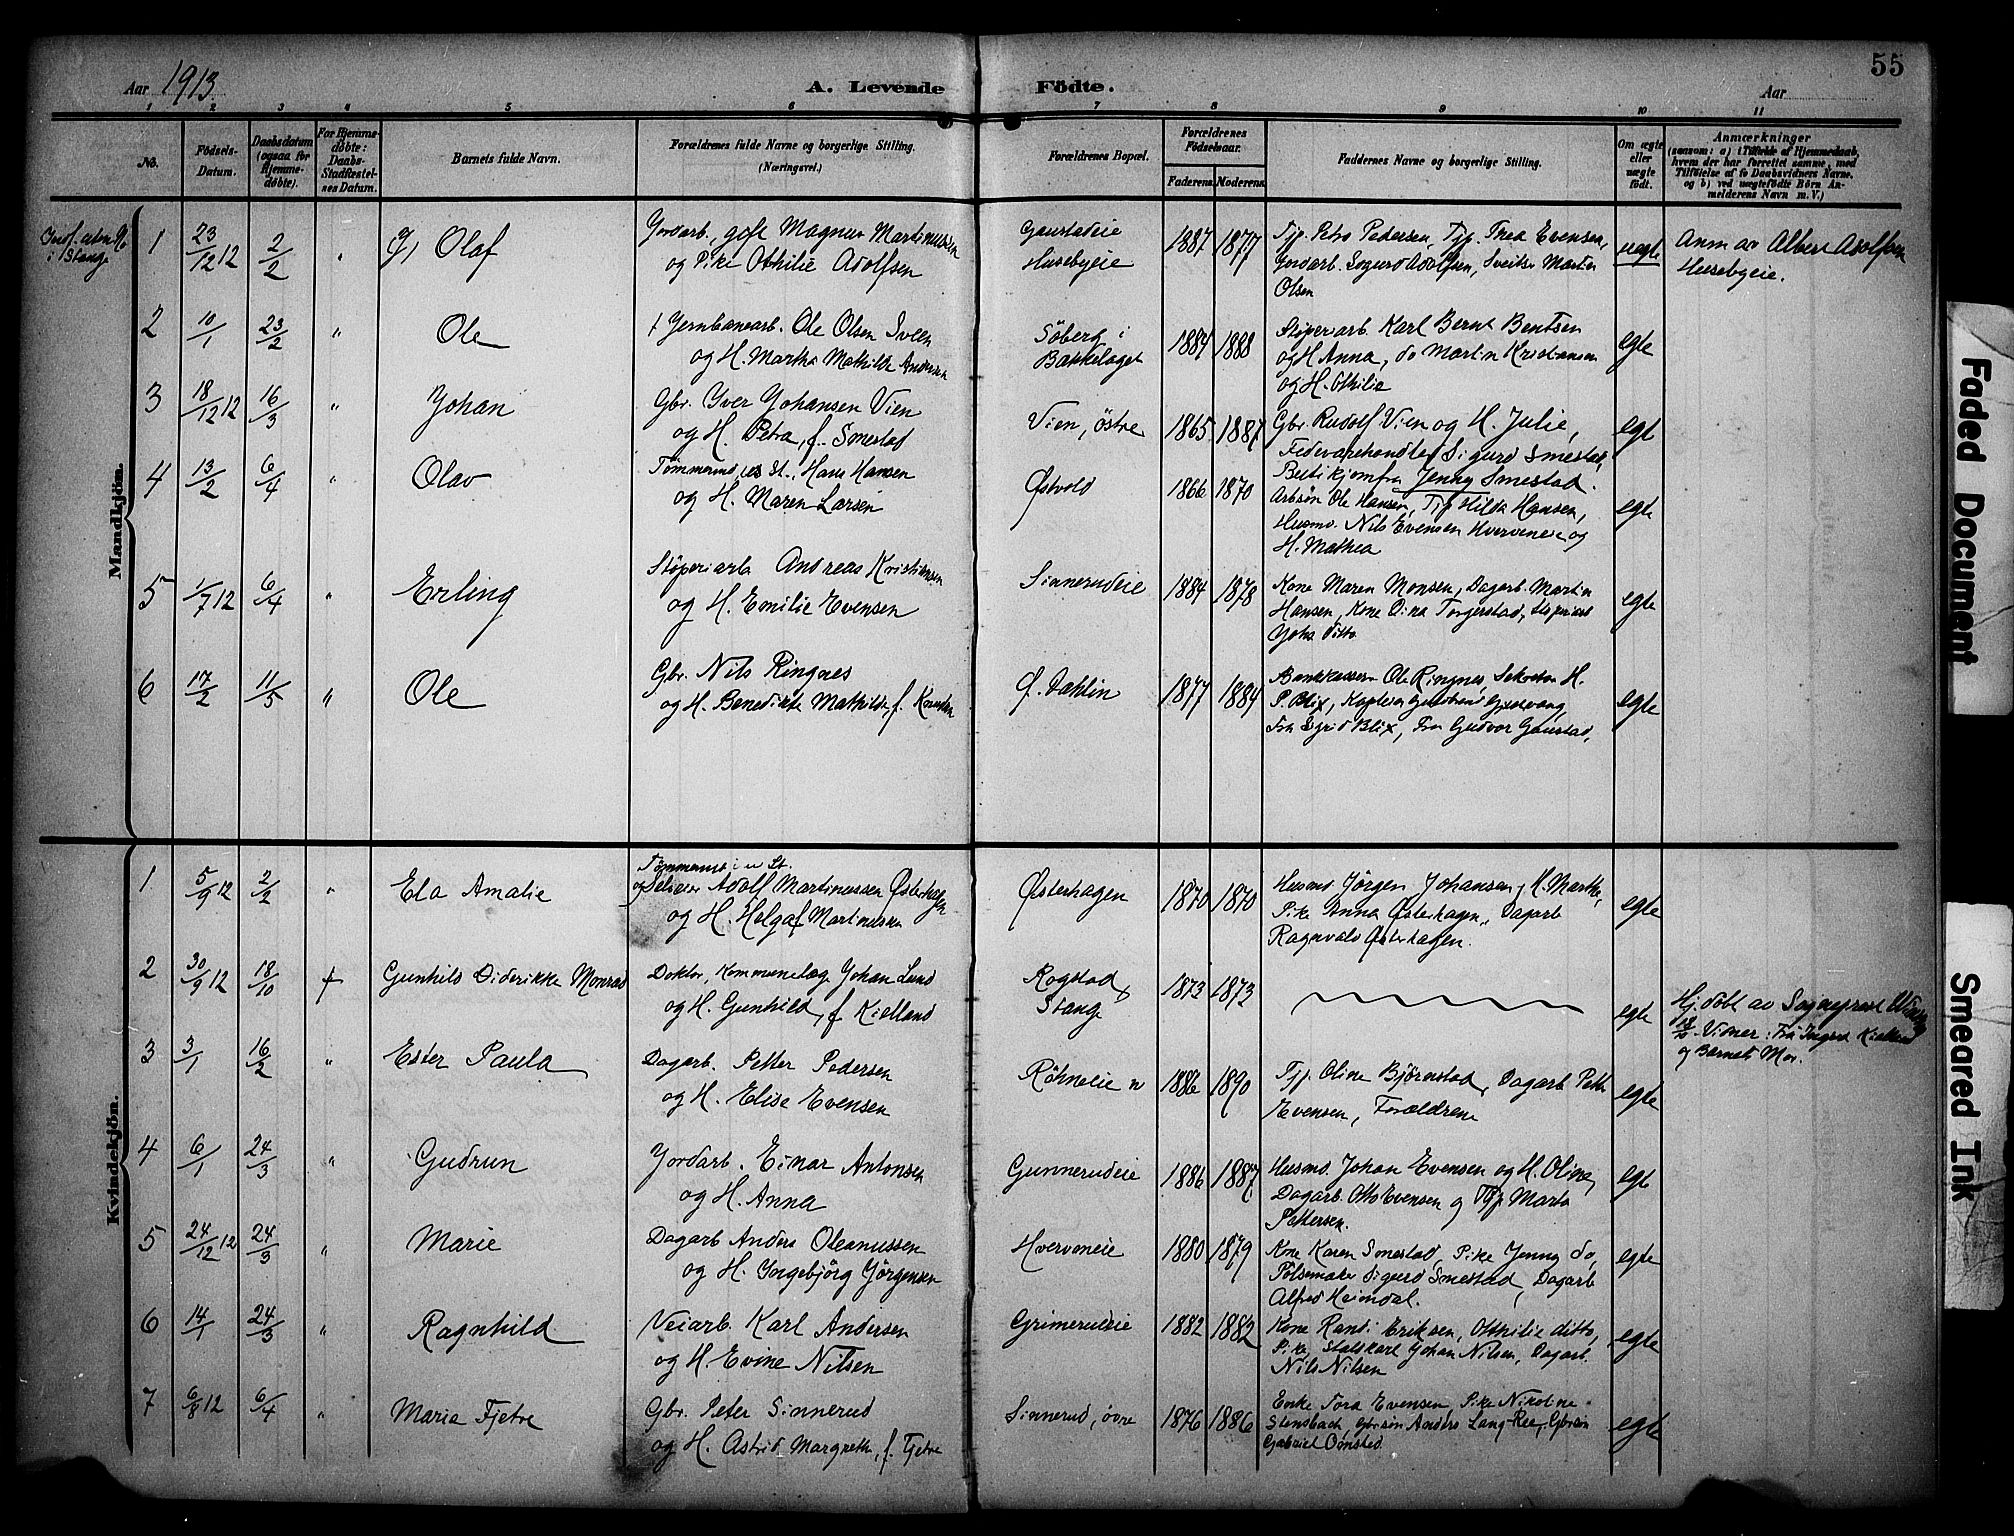 55
Aar 1913
A. Levende
Födte.
Aar
1 2 3 4 5 6 7 8 9 10 11
No.
Födsels-
Datum.
Daabsdatum
(ogsaa for
Hjemme-
döbte).
For Hjemme-
döbte:
Daabs-
Stadfæstel-
ses Datum.
Barnets fulde Navn.
Forældrenes fulde Navne og borgerlige Stilling.
(Næringsvei.)
Forældrenes Bopæl.
Forældrenes
Födselsaar.
Faderens. Moderens.
Faddernes Navne og borgerlige Stilling.
Om ægte
eller
uægte
födt.
Anmærkninger
(saasom: a) i Tilfælde af Hjemmedaab,
hvem der har forrettet samme, med
Tilföielse af to Daabsvidners Navne,
og b) ved uægtefödte Börn An-
melderens Navn m. V.)
Mandkjön.
i Stange
1 23/12 12 2/2 " Olaf
Jordarb., gift Magnus Martinussen
og Pike Othilie Adolfsen
Gaustadeie
Husebyeie
1887 1877
Tjp. Petra Pedersen, Tjp. Thea Evensen,
Jordarb. Sogurd Adolfsen, Sveitser Martin
Olsen
uegte
Anm av Albert Adolfsen
Husebyeie.
2 10/1 23/2 " Ole
† Jernbanearb. Ole Olsen Sveen
og H. Martha Mathilde Andersen
Söberg i
Bækkelaget
1884 1888
Støperiarb. Karl Bernt Bentsen
og H. Anna, do Martin Kristiansen
og H. Othilie
egte
3 18/12 12 16/3 " Johan
Gbr. Iver Johansen Vien
og H. Petra, f. Smestad
Vien, østre
1865 1887
Gbr. Rudolf Vien og H. Julie,
Fedevarehandler Sigurd Smestad,
Butikjomfru Jenny Smestad.
egt
4 13/2 6/4 " Olav
Tømmermd St., Hans Hansen
og H. Maren Larsen
Østvold
1866 1870
Arbsøn Ole Hansen, Tjp Hilda Hansen,
Husmd. Nils Evensen Hverveneie og
H. Mathea
egte
5 1/7 12 6/4 " Erling
Støperiarb Andreas Kristiansen
og H. Emilie Evensen
Sinnerudeie
1884 1878
Kone Maren Monsen, Dagarb. Martin
Hansen, Kone Dina Torgerstad, Støperiarb
Johs ditto
egte
6 17/2 11/5 " Ole
Gbr. Nils Ringnes
og H. Benedikte Mathilde, f. Knutsen
ø. Dæhlin
1877 1884
Bankkasserer Ole Ringnes, Sekretær H.
P. Blix, Gjestvang
Fru Sigrid Blix, Fru Gudvor Gaustad,
egte
Kvindekjön.
1 5/9 12 2/2 " Ela Amalie
Tømmermd i u St.
og Selveier Adolf Martinussen Østerhagen
og H. Helga f Martinusen
Østerhagen
1870 1870
Husmd Jörgen Johansen, H. Marthe,
Pike Anna Østerhagen, Dagarb
Ragnvald Østerhagen.
egte
2 30/9 12 18/10 † Gunhild Diderikke Monrad
Doktor, Kommunelæge Johan Lund
og H. Gunhild, f Kielland
Rogstad,
Stange
1873 1873
egte
Hj. döbt av Sogneprest
18/10. Vidner: Frk Kielland
og Barnets Mor.
3 3/1 16/2 " Ester Paula
Dagarb. Petter Pedersen
og H. Elise Evensen
Röhneeie n
1886 1890
Tjp. Oline Björnstad, Dagarb Petter
Evensen, Forældrene
egte
4 6/1 24/3 " Gudrun
Jordarb. Einar Antonsen
og H. Anna
Gunnerudeie
1886 1887
Husmd. Johan Evensen og H. Oline,
Dagarb. Otto Evensen og Tjp Marta
Pettersen.
egte
5 24/12 12 24/3 " Marie
Dagarb Anders Oleanussen
og H. Ingebjörg Jörgensen
Hverveneie
1880 1879
Kone Karen Smestad, Pike Jenny do,
Pölsemaker Sigurd Smestad, Dagarb
Alfred Heimdal.
egte
6 14/1 24/3 " Ragnhild
Veiarb. Karl Andersen
og H Evine Nilsen
Grimerudeie
1882 1882
Kone Randi Eriksen, Otthilie ditto,
Pike, Staldkarl Johan Nilsen, Dagarb.
Nils Nilsen
egte
7 6/8 12 6/4 " Maria Fjetre
Gbr. Peter Sinnerud
og H. Astrid Margreth, f. Fjetre
Sinnerud, övre
1876 1886
Enke Tora Evensen, Pike Nikoline
Stensbach, Gbrsøn Anders Lang-Ree, Gbrsøn
Gabriel Oonsted.
egte
Faded Document
Smeared Ink